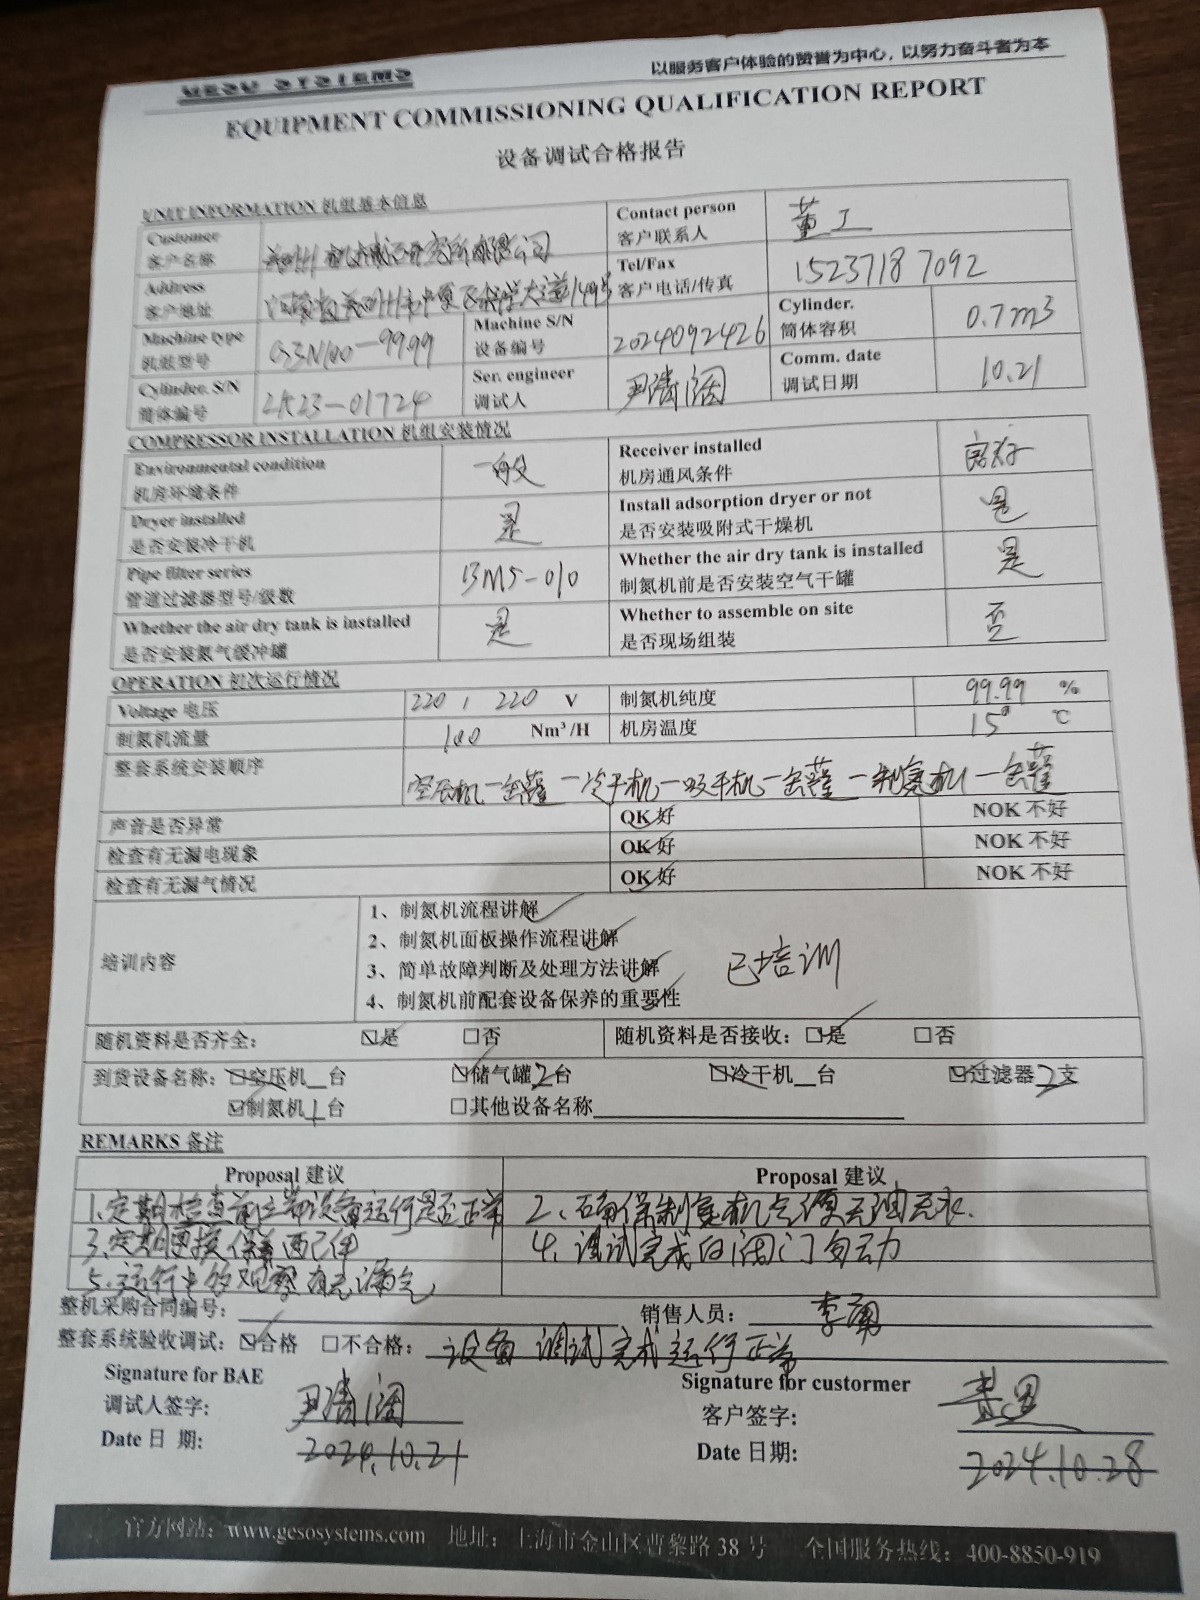 以服务客户体验的赞誉为中心，以努力奋斗者为本
EQUIPMENT COMMISSIONING QUALIFICATION REPORT
设备调试合格报告
UNIT INFORMATION 机组基本信息
Customer 客户名称 郑州机械研究所有限公司 Contact person 客户联系人 董工
Address 客户地址 河南省郑州市中原区科学大道149号 Tel/Fax 客户电话/传真 15237187092
Machine type 机组型号 GSN100-9999 Machine S/N 设备编号 2024092426 Cylinder. 筒体容积 0.7m3
Cylinder. S/N 筒体编号 2K23-01724 Ser. engineer 调试人 尹涛阔 Comm. date 调试日期 10.21
COMPRESSOR INSTALLATION 机组安装情况
Environmental condition 机房环境条件 一般 Receiver installed 机房通风条件 良好
Dryer installed 是否安装冷干机 是 Install adsorption dryer or not 是否安装吸附式干燥机 是
Pipe filter series 管道过滤器型号/级数 BMS-010 Whether the air dry tank is installed 制氮机前是否安装空气干罐 是
Whether the air dry tank is installed 是否安装氮气缓冲罐 是 Whether to assemble on site 是否现场组装 否
OPERATION 初次运行情况
Voltage 电压 220 / 220 V 制氮机纯度 99.99 %
制氮机流量 100 Nm³/H 机房温度 15° ℃
整套系统安装顺序 空压机—储罐—冷干机—吸干机—储罐—制氮机—储罐
声音是否异常 OK 好 NOK 不好
检查有无漏电现象 OK 好 NOK 不好
检查有无漏气情况 OK 好 NOK 不好
培训内容
1、制氮机流程讲解
2、制氮机面板操作流程讲解
3、简单故障判断及处理方法讲解 已培训
4、制氮机前配套设备保养的重要性
随机资料是否齐全： ☑是 □否 随机资料是否接收： ☑是 □否
到货设备名称： □空压机_台 ☑储气罐2台 □冷干机_台 ☑过滤器2支
☑制氮机1台 □其他设备名称
REMARKS 备注
Proposal 建议 Proposal 建议
1、定期检查前位带设备运行是否正常 2、确保制氮机气源无油无水.
3、定期更换保养配件 4、调试完成的阀门勿动
5、运行中多观察有无漏气
整机采购合同编号： 销售人员：
整套系统验收调试： ☑合格 □不合格： 设备调试完成运行正常
Signature for BAE Signature for custormer
调试人签字： 尹涛阔 客户签字：
Date 日 期: 2024.10.21 Date 日期: 2024.10.28
官方网站：www.gesosystems.com 地址：上海市金山区曹黎路 38 号 全国服务热线：400-8850-919